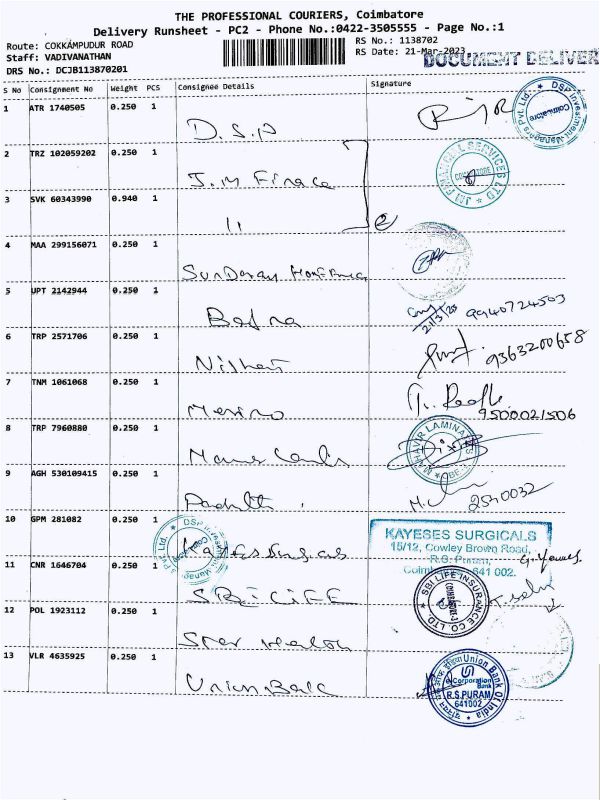 THE PROFESSIONAL COURIERS, Coimbatore
Delivery Runsheet - PC2 - Phone No.:0422-3505555 - Page No.:1
Route: COKKAMPUDUR ROAD
Staff: VADIVANATHAN
DRS No.: DCJB113870201
RS No.: 1138702
RS Date: 21-Mar-2023
DOCUMENT DELIVER
S No Consignment No Weight PCS Consignee Details Signature
1 ATR 1740505 0.250 1 D.S.P
DSP Investment Manager's Pvt. Ltd. Coimbatore
2 TRZ 102059202 0.250 1 J.M Finace
JM FINANCIAL SERVICES LTD COIMBATORE
3 SVK 60343990 0.940 1 11
4 MAA 299156071 0.250 1 Sundaram
5 UPT 2142944 0.250 1 Bafna 21/3/23 9940724503
6 TRP 2571706 0.250 1 Nishant 9363200658
7 TNM 1061068 0.250 1 Merino 9500021506
8 TRP 7960880 0.250 1
MAHAVIR LAMINATES CBE-1
9 AGH 530109415 0.250 1 2540032
10 GPM 281082 0.250 1 Kayeses Surgicals
DSP Investment Manager's Pvt. Ltd. Coimbatore
KAYESES SURGICALS
15/12, Cowley Brown Road,
R.S. Puram,
Coimbatore - 641 002.
11 CNR 1646704 0.250 1 SBI LIFE
SBI LIFE INSURANCE CO LTD. COIMBATORE-3
12 POL 1923112 0.250 1 Star Health
13 VLR 4635925 0.250 1 Union Bank
Union Bank Of India
e-Corporation Bank
R.S.PURAM
641002